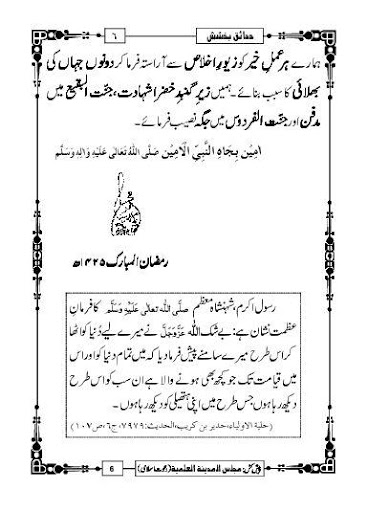 حدائق بخشش
٦
ہمارے ہر عملِ خیر کو زیورِ اخلاص سے آراستہ فرما کر دونوں جہاں کی
بھلائی کا سبب بنائے۔ ہمیں زیرِ گنبدِ خضرا شہادت، جنّت البقیع میں
مدفن اور جنّت الفردوس میں جگہ نصیب فرمائے۔
اٰمِیْن بِجَاہِ النَّبِیِّ الْاَمِیْن صَلَّی اللّٰہُ تَعَالٰی عَلَیْہِ وَاٰلِہٖ وَسَلَّم
رمضان المبارک ۱۴۲۵ھ
رسول اکرم، شہنشاہ معظم صَلَّی اللّٰہُ تَعَالٰی عَلَیْہِ وَسَلَّم کا فرمانِ
عظمت نشان ہے: بے شک اللّٰہ عَزَّوَجَلَّ نے میرے لیے دُنیا کو اٹھا
کر اس طرح میرے سامنے پیش فرما دیا کہ میں تمام دنیا کو اور اس
میں قیامت تک جو کچھ بھی ہونے والا ہے ان سب کو اس طرح
دیکھ رہا ہوں جس طرح میں اپنی ہتھیلی کو دیکھ رہا ہوں۔
(حلیۃ الاولیاء، حدیر بن کریب، الحدیث:۷۹۷۹، ج۶، ص۱۰۷)
پیش کش: مجلس المدینۃ العلمیۃ (دعوتِ اسلامی)
6